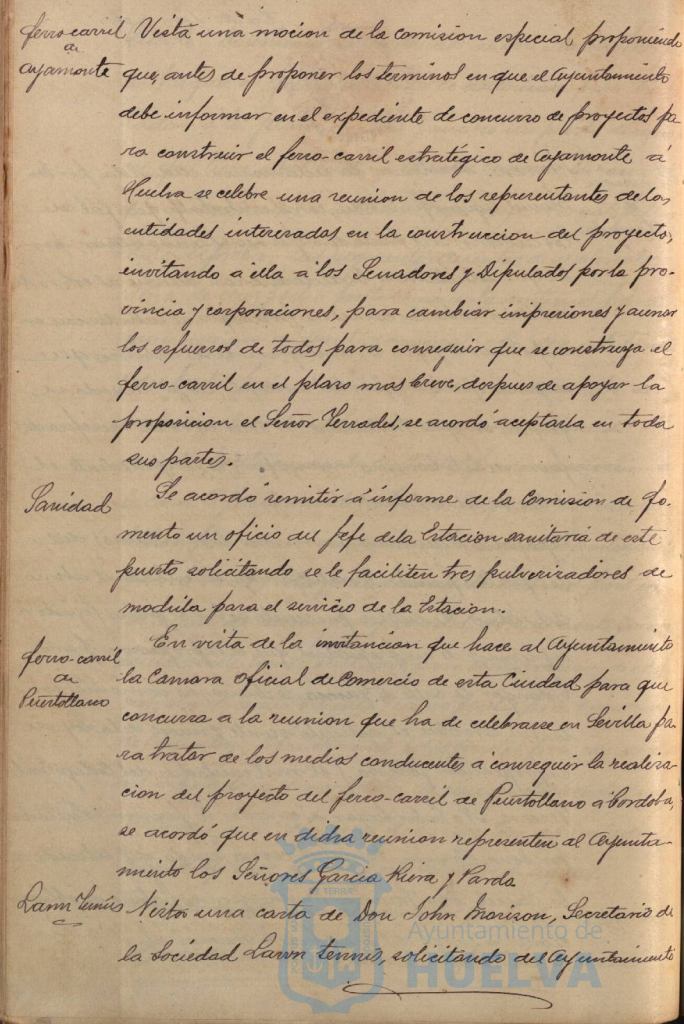 ferro-carril
a
ayamonte
Vista una mocion de la comision especial proponiendo
que, antes de proponer los terminos en que el Ayuntamiento
debe informar en el expediente de concurso de proyectos pa
ra construir el ferro-carril estratégico de Ayamonte á
Huelva se celebre una reunion de los representantes de las
entidades interesadas en la construccion del proyecto,
invitando á ella á los Senadores y Diputados por la pro-
vincia y corporaciones, para cambiar impresiones y aunar
los esfuerzos de todos para conseguir que se construya el
ferro-carril en el plazo mas breve, despues de apoyar la
proposicion el Señor Terrades, se acordó aceptarla en toda
sus partes.
Sanidad
Se acordó remitir á informe de la Comision de fo-
mento un oficio del Jefe de la Estacion sanitaria de este
puerto solicitando se le faciliten tres pulverizadores de
mochila para el servicio de la Estacion.
ferro-carril
de
Puertollano
En vista de la invitacion que hace al Ayuntamiento
la Camara oficial de Comercio de esta Ciudad para que
concurra a la reunion que ha de celebrarse en Sevilla pa
ra tratar de los medios conducentes á conseguir la realiza-
cion del proyecto del ferro-carril de Puertollano á Cordoba,
se acordó que en dicha reunion representen al Ayunta-
miento los Señores Garcia Riera y Parda
Lawn Tennis
Vistos una carta de Don John Morison, Secretario de
la Sociedad Lawn tennis, solicitando del Ayuntamiento
Ayuntamiento de
HUELVA